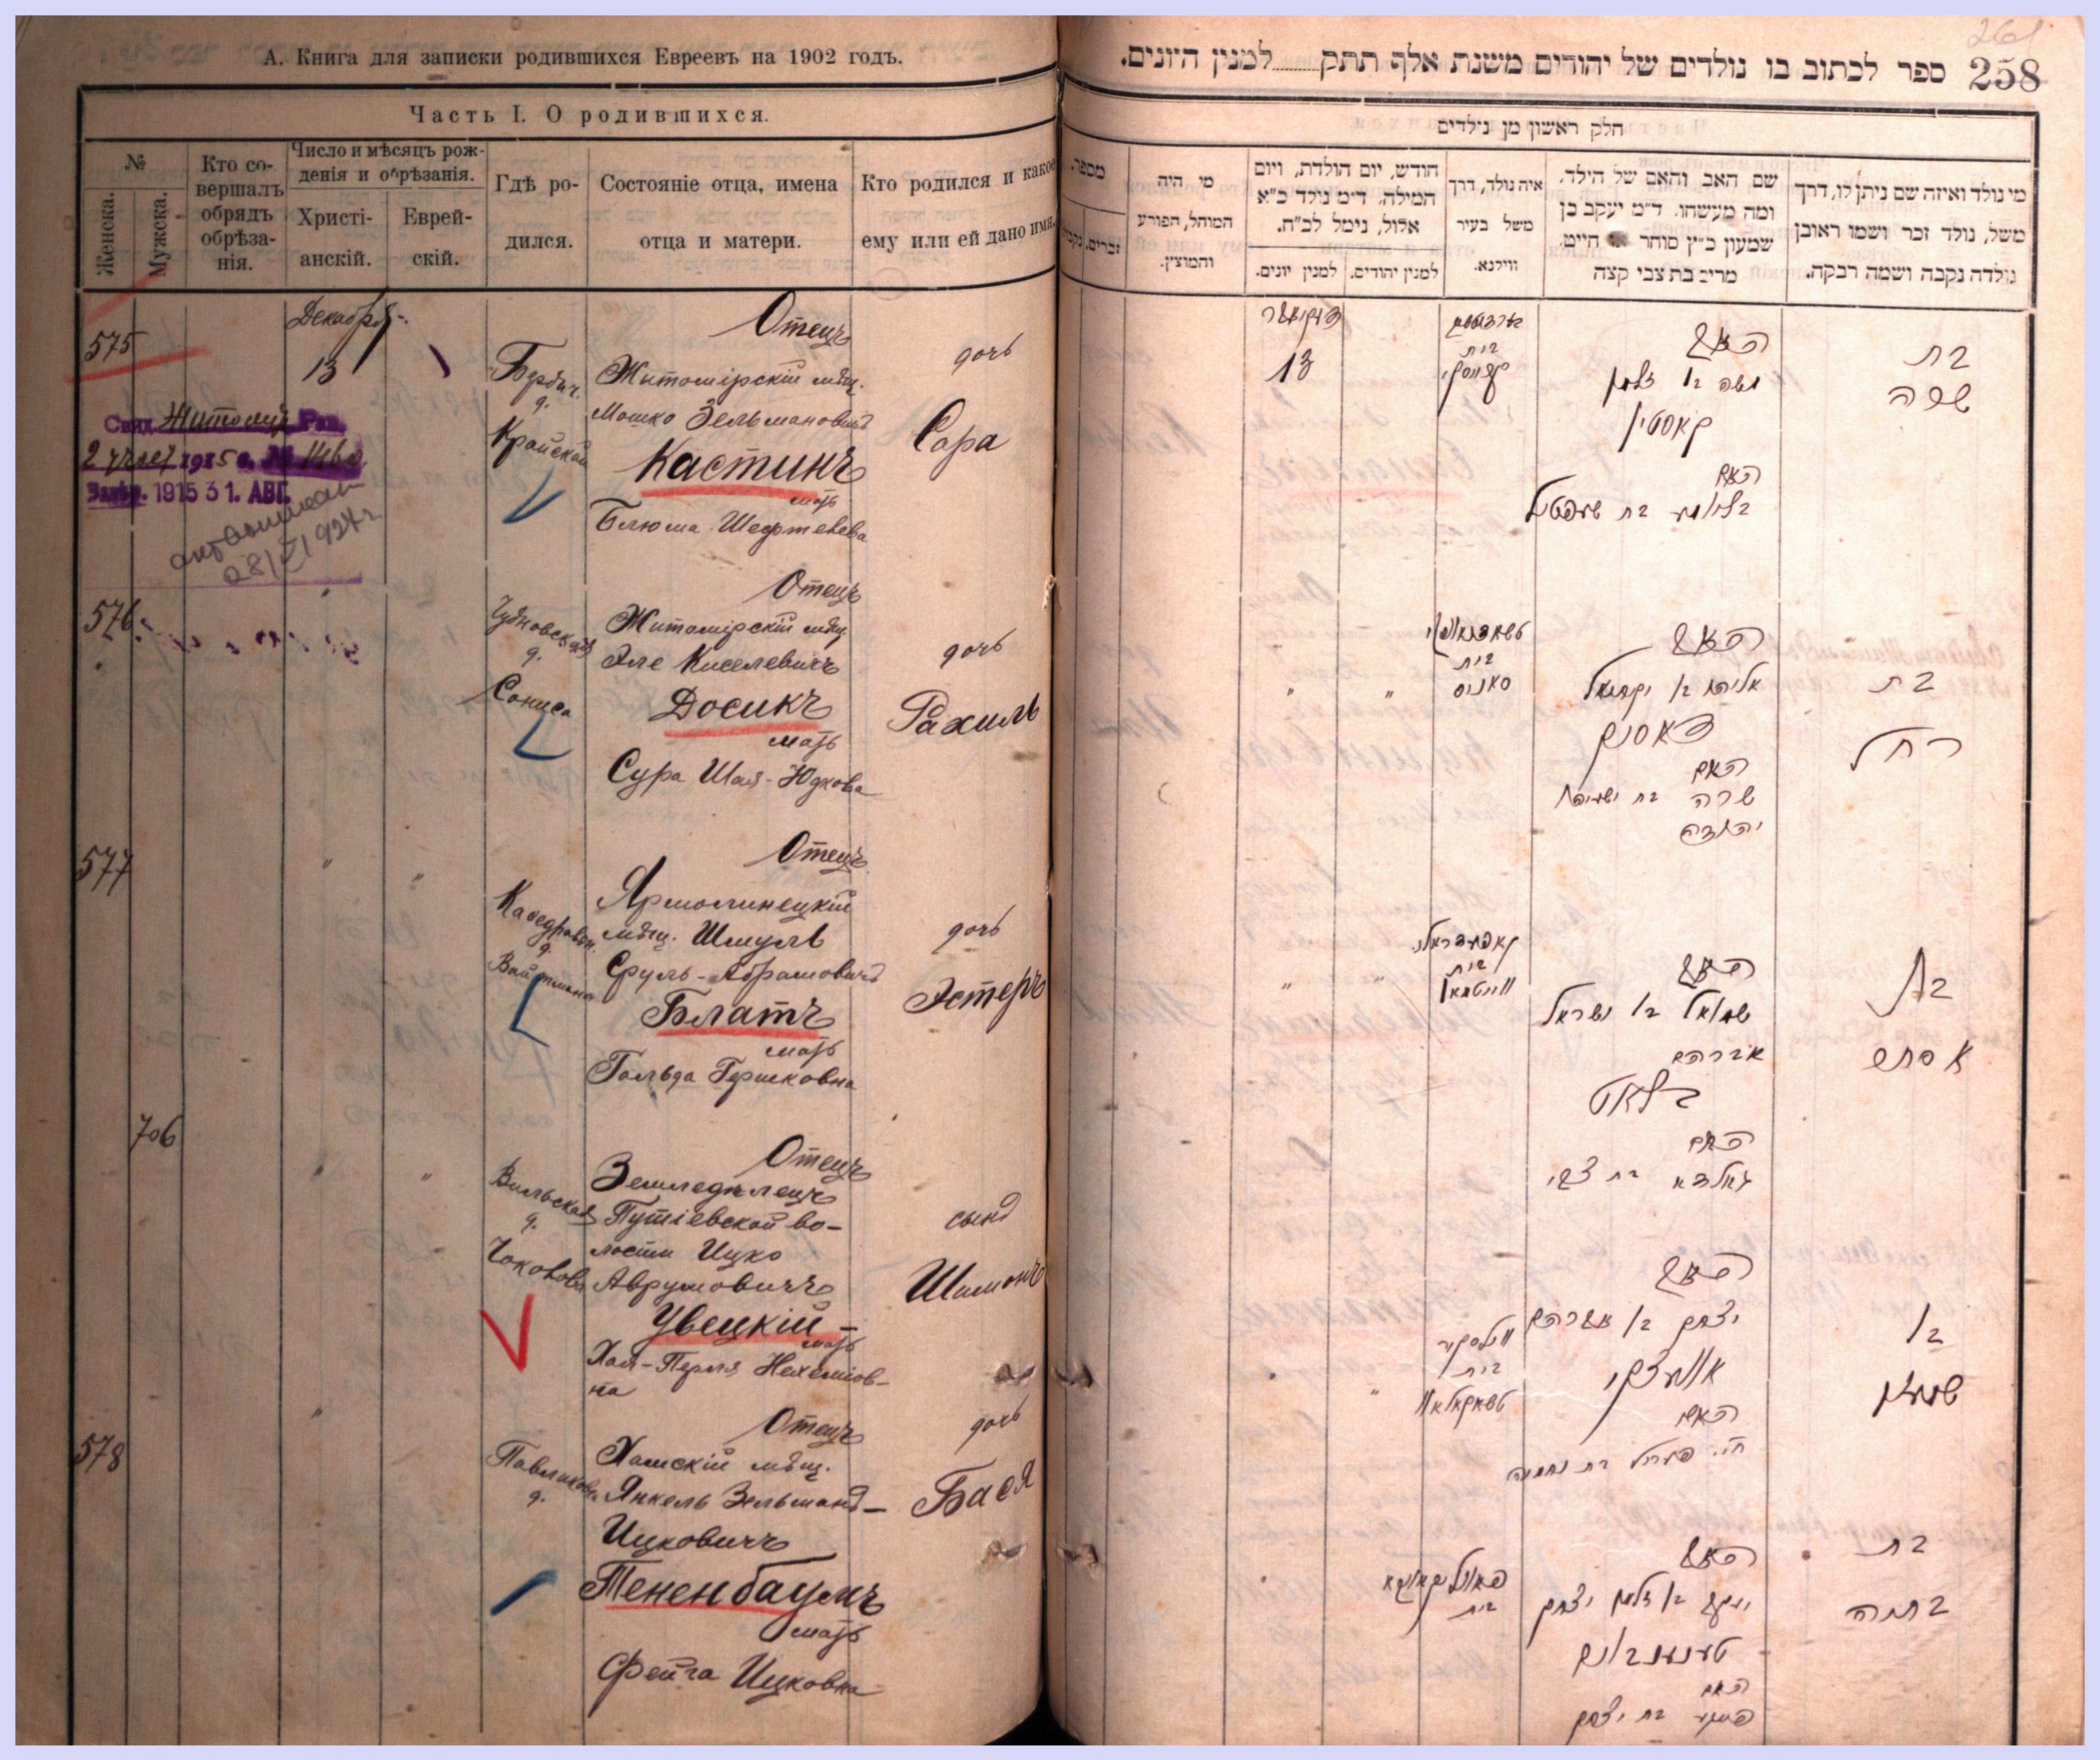 А. Книга для записки родившихся Евреевъ на 1902 годъ.
Часть I. О родившихся.
№
Женска.
Мужска.
Кто совершалъ обрядъ обрѣзанія.
Число и мѣсяцъ рожденія и обрѣзанія.
Христіанскій.
Еврейскій.
Гдѣ родился.
Состояніе отца, имена отца и матери.
Кто родился и какое ему или ей дано имя.
575
Декабря
13
Бердич.
д.
Крайской
Отецъ
Житомірскій мѣщ.
Мошко Зельмановичъ
Кастинъ
мать
Блюма Шефтелева
дочь
Сара
Свид. Житомир. Рав.
1915 31. АВГ.
576
Чудновская
д.
Отецъ
Житомірскій мѣщ.
Эле Киселевичъ
Досикъ
мать
Сура Шая-Юдкова
дочь
Рахиль
577
"
"
Каѳедральн.
д.
Вайтмана
Отецъ
Ярмолинецкій
мѣщ. Шмуль
Сруль-Абрамовичъ
Блатъ
мать
Гольда Гершковна
дочь
Эстеръ
706
"
"
Вильская
д.
Отецъ
Земледѣлецъ
Путіевской во-
лости Ицко
Аврумовичъ
Увецкій
мать
Хая-Перля Нехеміов-
на
сынъ
Шимонъ
578
"
д.
Отецъ
мѣщ.
Янкель Зельманъ-
Ицковичъ
Тененбаумъ
мать
Фейга Ицковна
дочь
Бася
261
258
ספר לכתוב בו נולדים של יהודים משנת אלף תתק......למנין היונים.
חלק ראשון מן נולדים
מי נולד ואיזה שם ניתן לו, דרך
משל, נולד זכר ושמו ראובן
נולדה נקבה ושמה רבקה.
שם האב והאם של הילד,
ומה מעשהו. ד"מ יעקב בן
שמעון כ"ץ סוחר חיים
מריב בת צבי קצה
איה נולד, דרך
משל בעיר
ווילנא.
חודש, יום הולדת, ויום
המילה. ד"מ נולד כ"א
אלול, נימל לכ"ח.
למנין יהודים.
למנין יונים.
מי היה
המוהל, הפורע
והמוצץ.
מספר.
זכרים.
בת
שרה
האב
משה בן זלמן
קאסטין
האם
בלומע בת שעפטיל
בית
13
בת
רחל
האב
האם
שרה בת ישעיהו
יהודה
בית
"
"
בת
אסתר
האב
שמואל בן ישראל
אברהם
בלאט
האם
גאלדא בת צבי
בית
ווייטמאן
"
"
בן
שמעון
האב
יצחק בן אברהם
אוועצקי
האם
חי' פערל בת נחמיה
בית
"
בת
בתיה
האב
יעקב בן זלמן יצחק
טענענבוים
האם
פייגע בת יצחק
בית